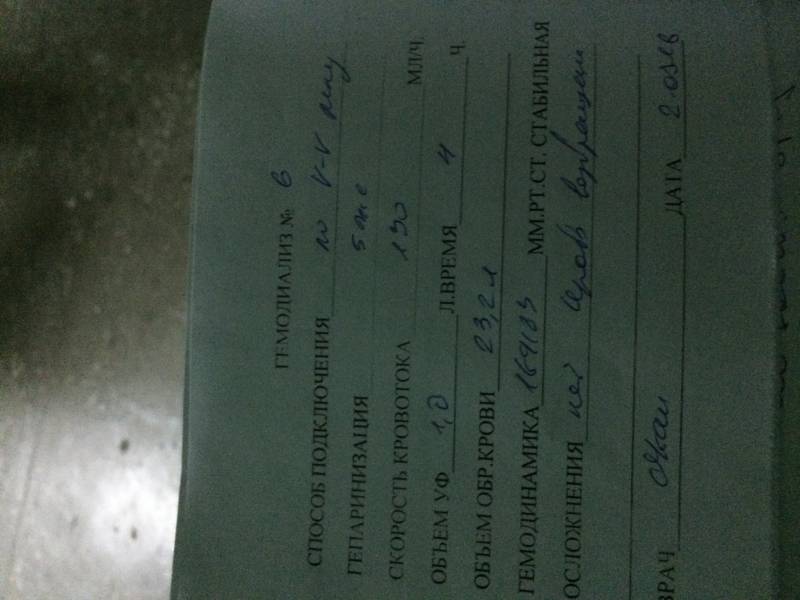 ГЕМОДИАЛИЗ № 6
СПОСОБ ПОДКЛЮЧЕНИЯ по V-V типу
ГЕПАРИНИЗАЦИЯ 5 тыс
СКОРОСТЬ КРОВОТОКА 190 МЛ/Ч.
ОБЪЕМ УФ 1,0 Л.ВРЕМЯ 4 Ч.
ОБЪЕМ ОБР.КРОВИ 23,2 л
ГЕМОДИНАМИКА ММ.РТ.СТ. СТАБИЛЬНАЯ
ОСЛОЖНЕНИЯ нет Кровь возвращена
ВРАЧ ДАТА